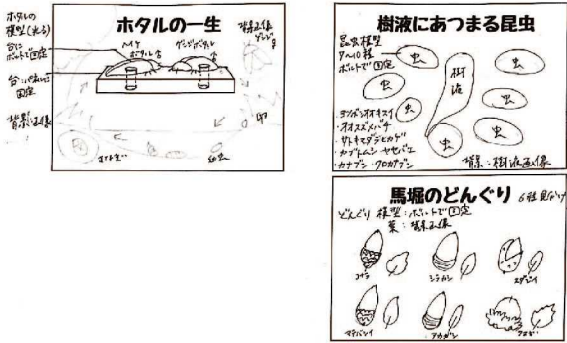 ホタルの一生
ホタルの
模型(光る)
台に
ボルトで固定
固定
背景画像
ヘイケ
ボタル♂
ゲンジボタル
背景画像
卵
幼虫
樹液にあつまる昆虫
昆虫模型
7〜10種
ボルトで固定
樹液
虫
虫
虫
虫
虫
虫
虫
・ヨツボシオオキスイ
・オオスズメバチ
・サトキマダラヒカゲ
・カブトムシ・ヤセバエ
・カナブン・クロカナブン
背景:樹液画像
馬堀のどんぐり
6種見分け
どんぐり模型:ボルトで固定
葉:背景画像
コナラ
シラカシ
スダジイ
マテバシイ
アカガシ
クヌギ